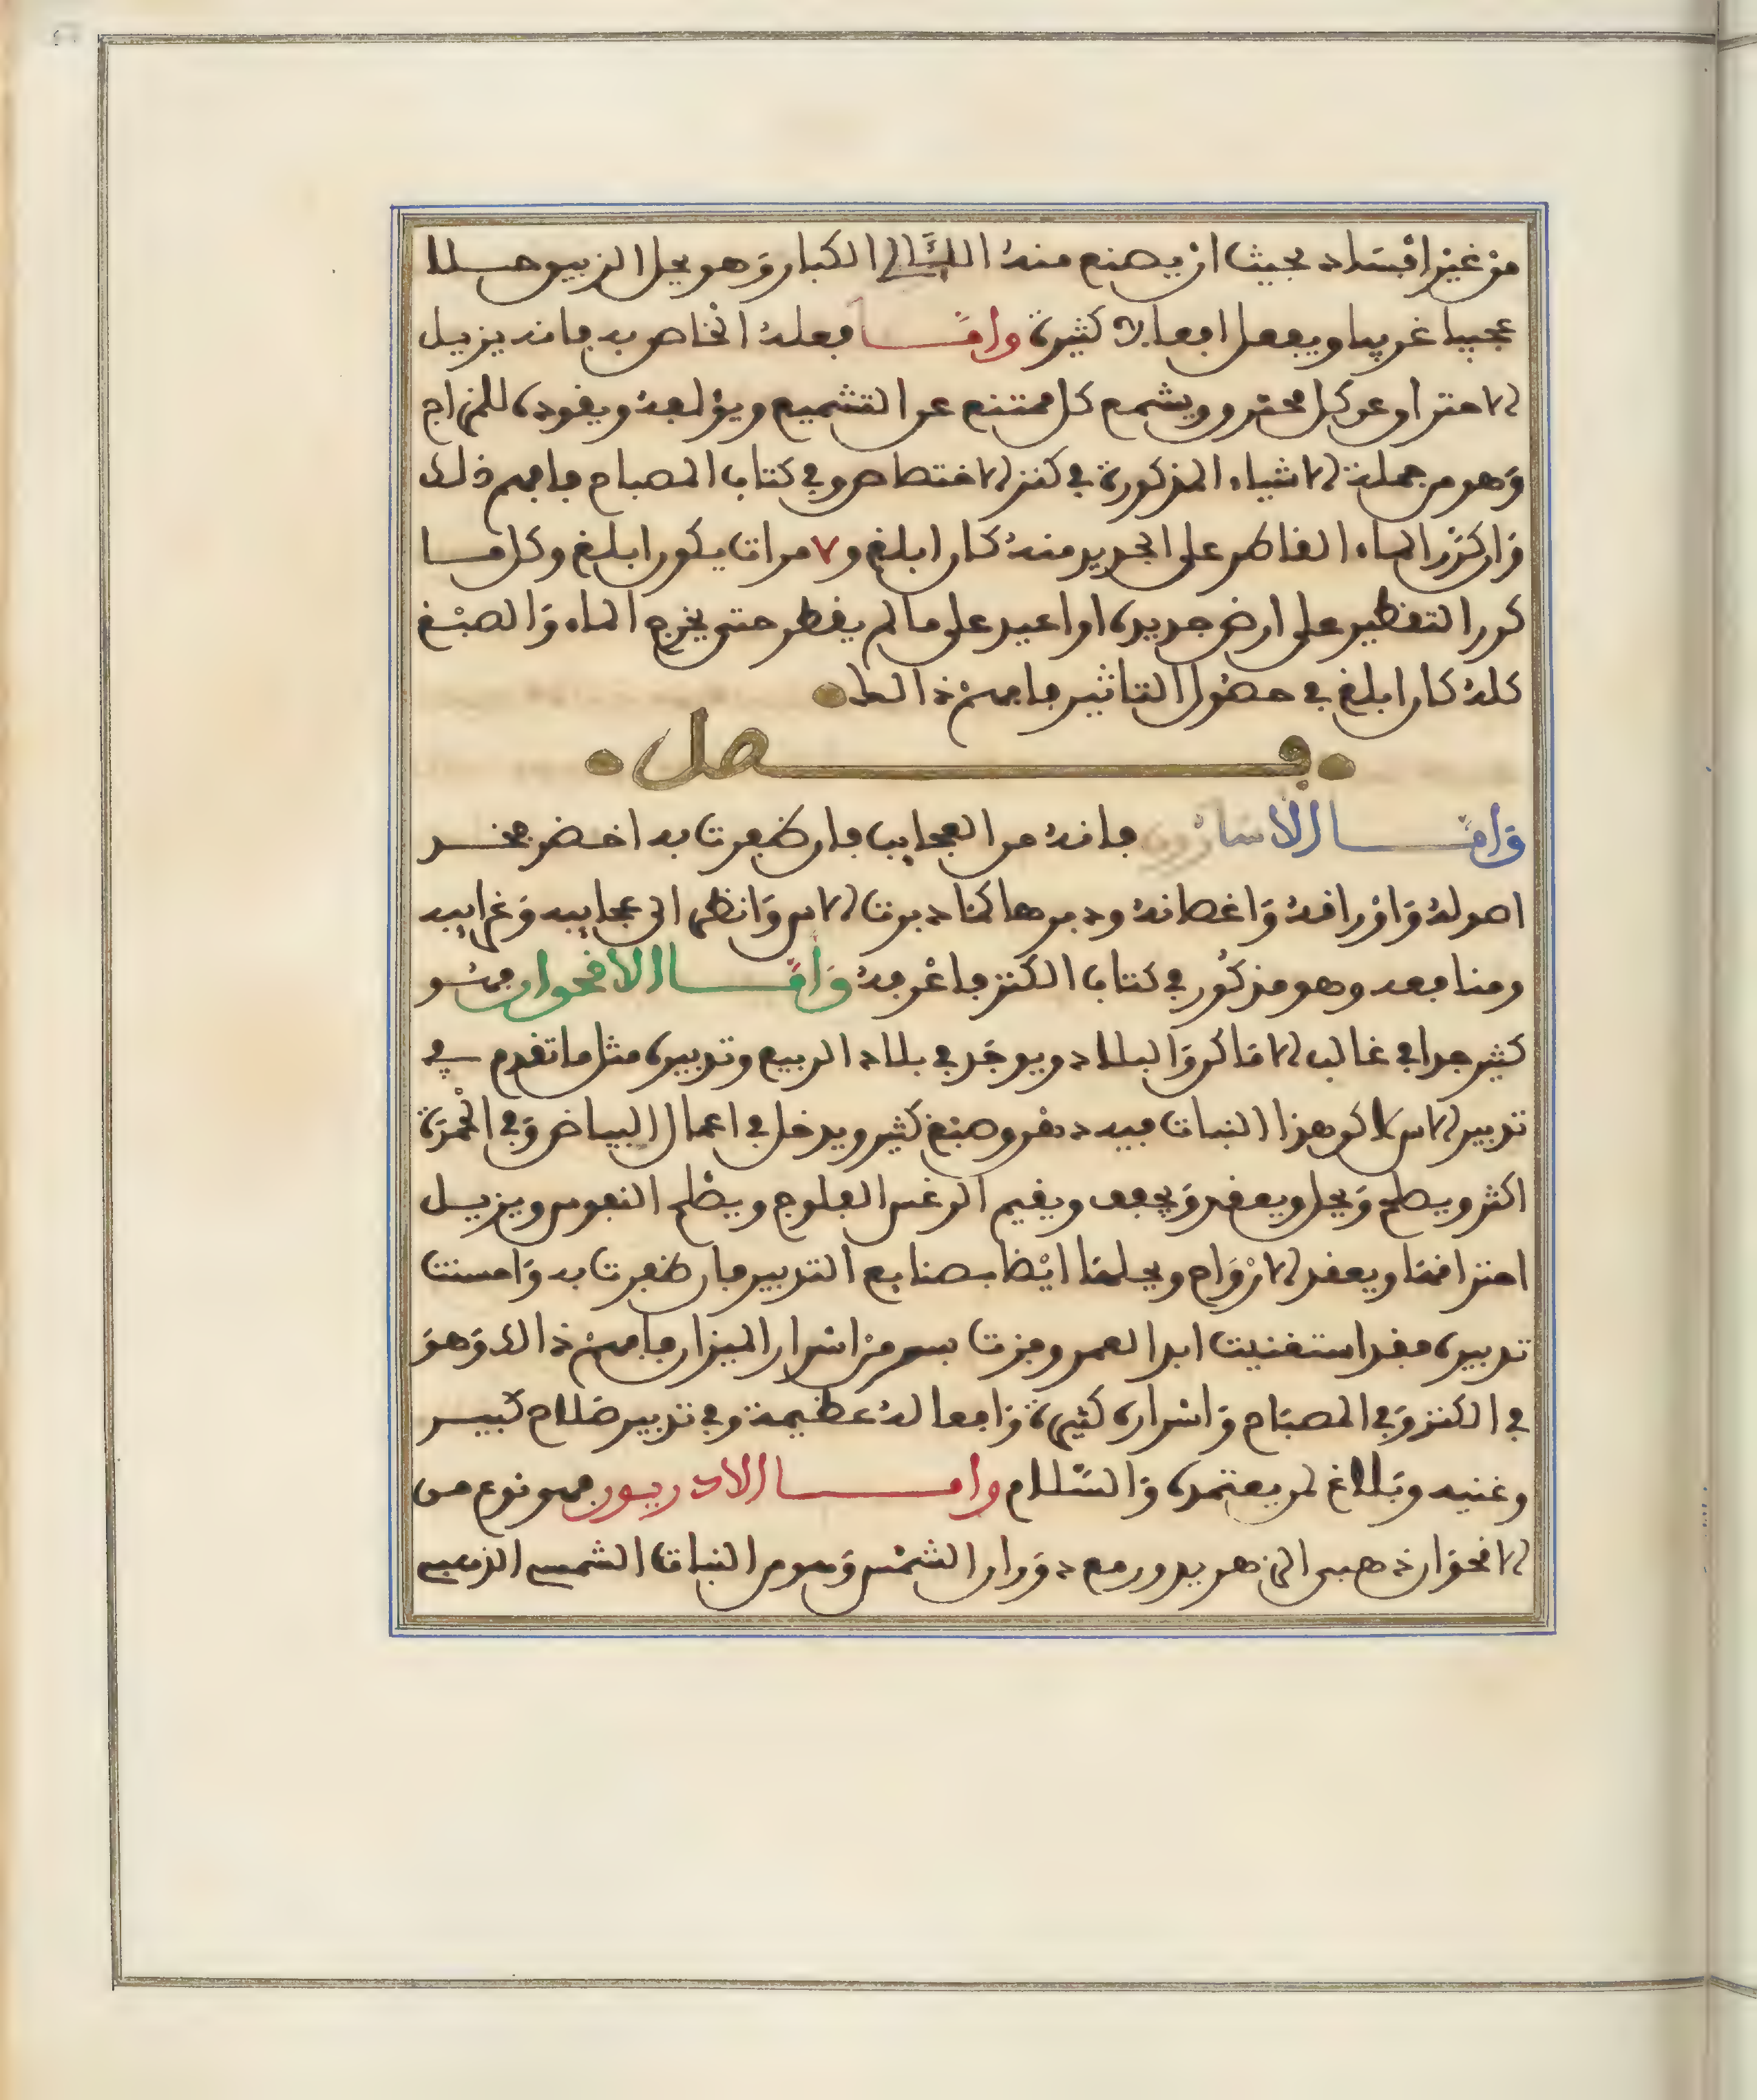 من غير افساد بحيث ان يصنع منه اللئالي الكبار وهو يحل الزيبق حللا
عجيبا غريبا ويفعل افعالا كثيرة واما فعله الخاص به فانه يزيل
الاحتراق عن كل محترق ويشمع كل ممتنع عن التشميع ويؤلفه ويقوده للمزاج
وهو من جملة الاشياء المذكورة في كنز الاختصاص وفي كتاب المصباح فافهم ذلك
وان كرر الماء القاطر على الجديد منه كان ابلغ و٧ مرات يكون ابلغ وكل ما
كرر التقطير على ارض جديدة او اعيد على ما لم يقطر حتى يخرج الماء والصبغ
كله كان ابلغ في حصول التاثير فافهم ذالك
فصل
واما الاسارون فانه من العجايب فان ظفرت به اخضر فخذ
اصوله واوراقه واغصانه ودبرها كما دبرت الاس وانظر الى عجايبه وغرايبه
ومنافعه وهو مذكور في كتاب الكنز فاعرفه واما الاقحوان فهو
كثير جدا في غالب الاماكن والبلاد ويوجد في بلاد الربيع وتدبيره مثل ما تقدم في
تدبير الاس لاكن هذا النبات فيه دهن وصبغ كثير ويدخل في اعمال البياض وفي الحمرة
اكثر ويصلح ويحل ويعقد ويجفف ويقيم الوغس الفلوج ويصلح النفوس ويزيل
احتراقها ويعقد الارواح ويحلها ايضا بصنايع التدبير فان ظفرت به واحسنت
تدبيره فقد استغنيت ابدا العمر وفزت بسر من اسرار الميزان فافهم ذالك وهو
في الكنز وفي المصباح واسراره كثيرة وافعاله عظيمة وفي تدبير صلاح كبير
وغنيه وبلاغ لمن يعتمده والسلام واما الادريون فهو نوع من
الاقحوان ذهبي الزهر يدور مع دوران الشمس وهو من النبات الشمسي الذهبي